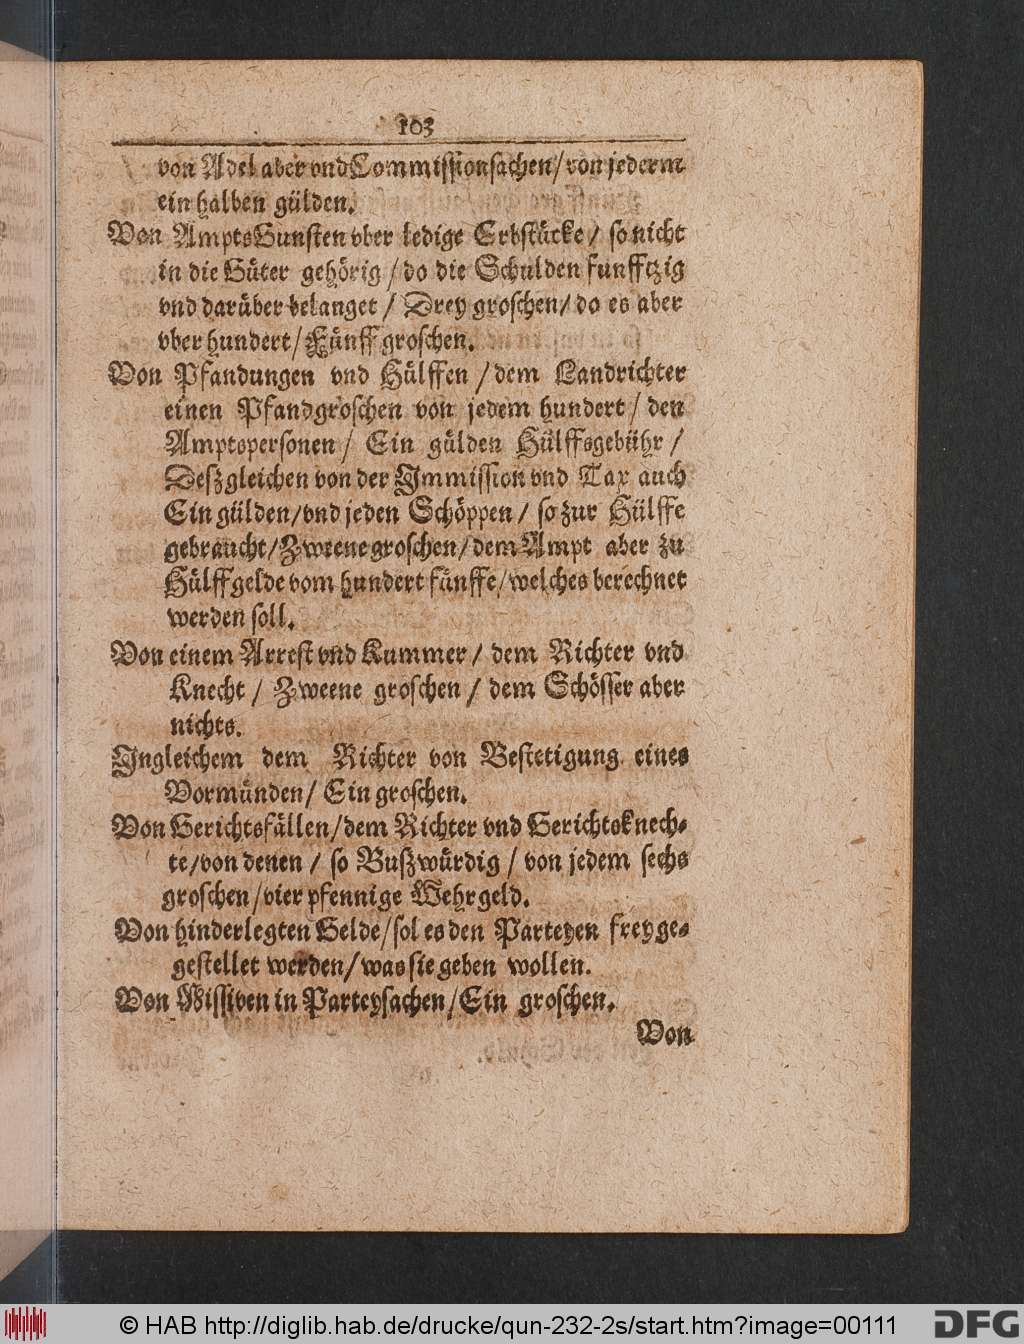 103
von Adel aber vnd Commissionsachen/ von jederm
ein halben gülden.
Von AmptsGunsten vber ledige Erbstücke/ so nicht
in die Güter gehörig/ do die Schulden funfftzig
vnd darüber belanget/ Drey groschen/ do es aber
vber hundert/ Fünff groschen.
Von Pfandungen vnd Hülffen/ dem Landrichter
einen Pfandgroschen von jedem hundert/ den
Amptspersonen/ Ein gülden Hülffsgebühr/
Deßgleichen von der Immission vnd Tax auch
Ein gülden/ vnd jeden Schöppen/ so zur Hülffe
gebraucht/ Zweene groschen/ dem Ampt aber zu
Hülffgelde vom hundert fünffe/ welches berechnet
werden soll.
Von einem Arrest vnd Kummer/ dem Richter vnd
Knecht/ Zweene groschen/ dem Schösser aber
nichts.
Ingleichem dem Richter von Bestetigung eines
Vormünden/ Ein groschen.
Von Gerichtsfällen/ dem Richter vnd Gerichtsknech-
te/ von denen/ so Bußwürdig/ von jedem sechs
groschen/ vier pfennige Wehrgeld.
Von hinderlegten Gelde/ sol es den Parteyen freyge-
gestellet werden/ was sie geben wollen.
Von Missiven in Parteysachen/ Ein groschen.
Von
© HAB http://diglib.hab.de/drucke/qun-232-2s/start.htm?image=00111
DFG